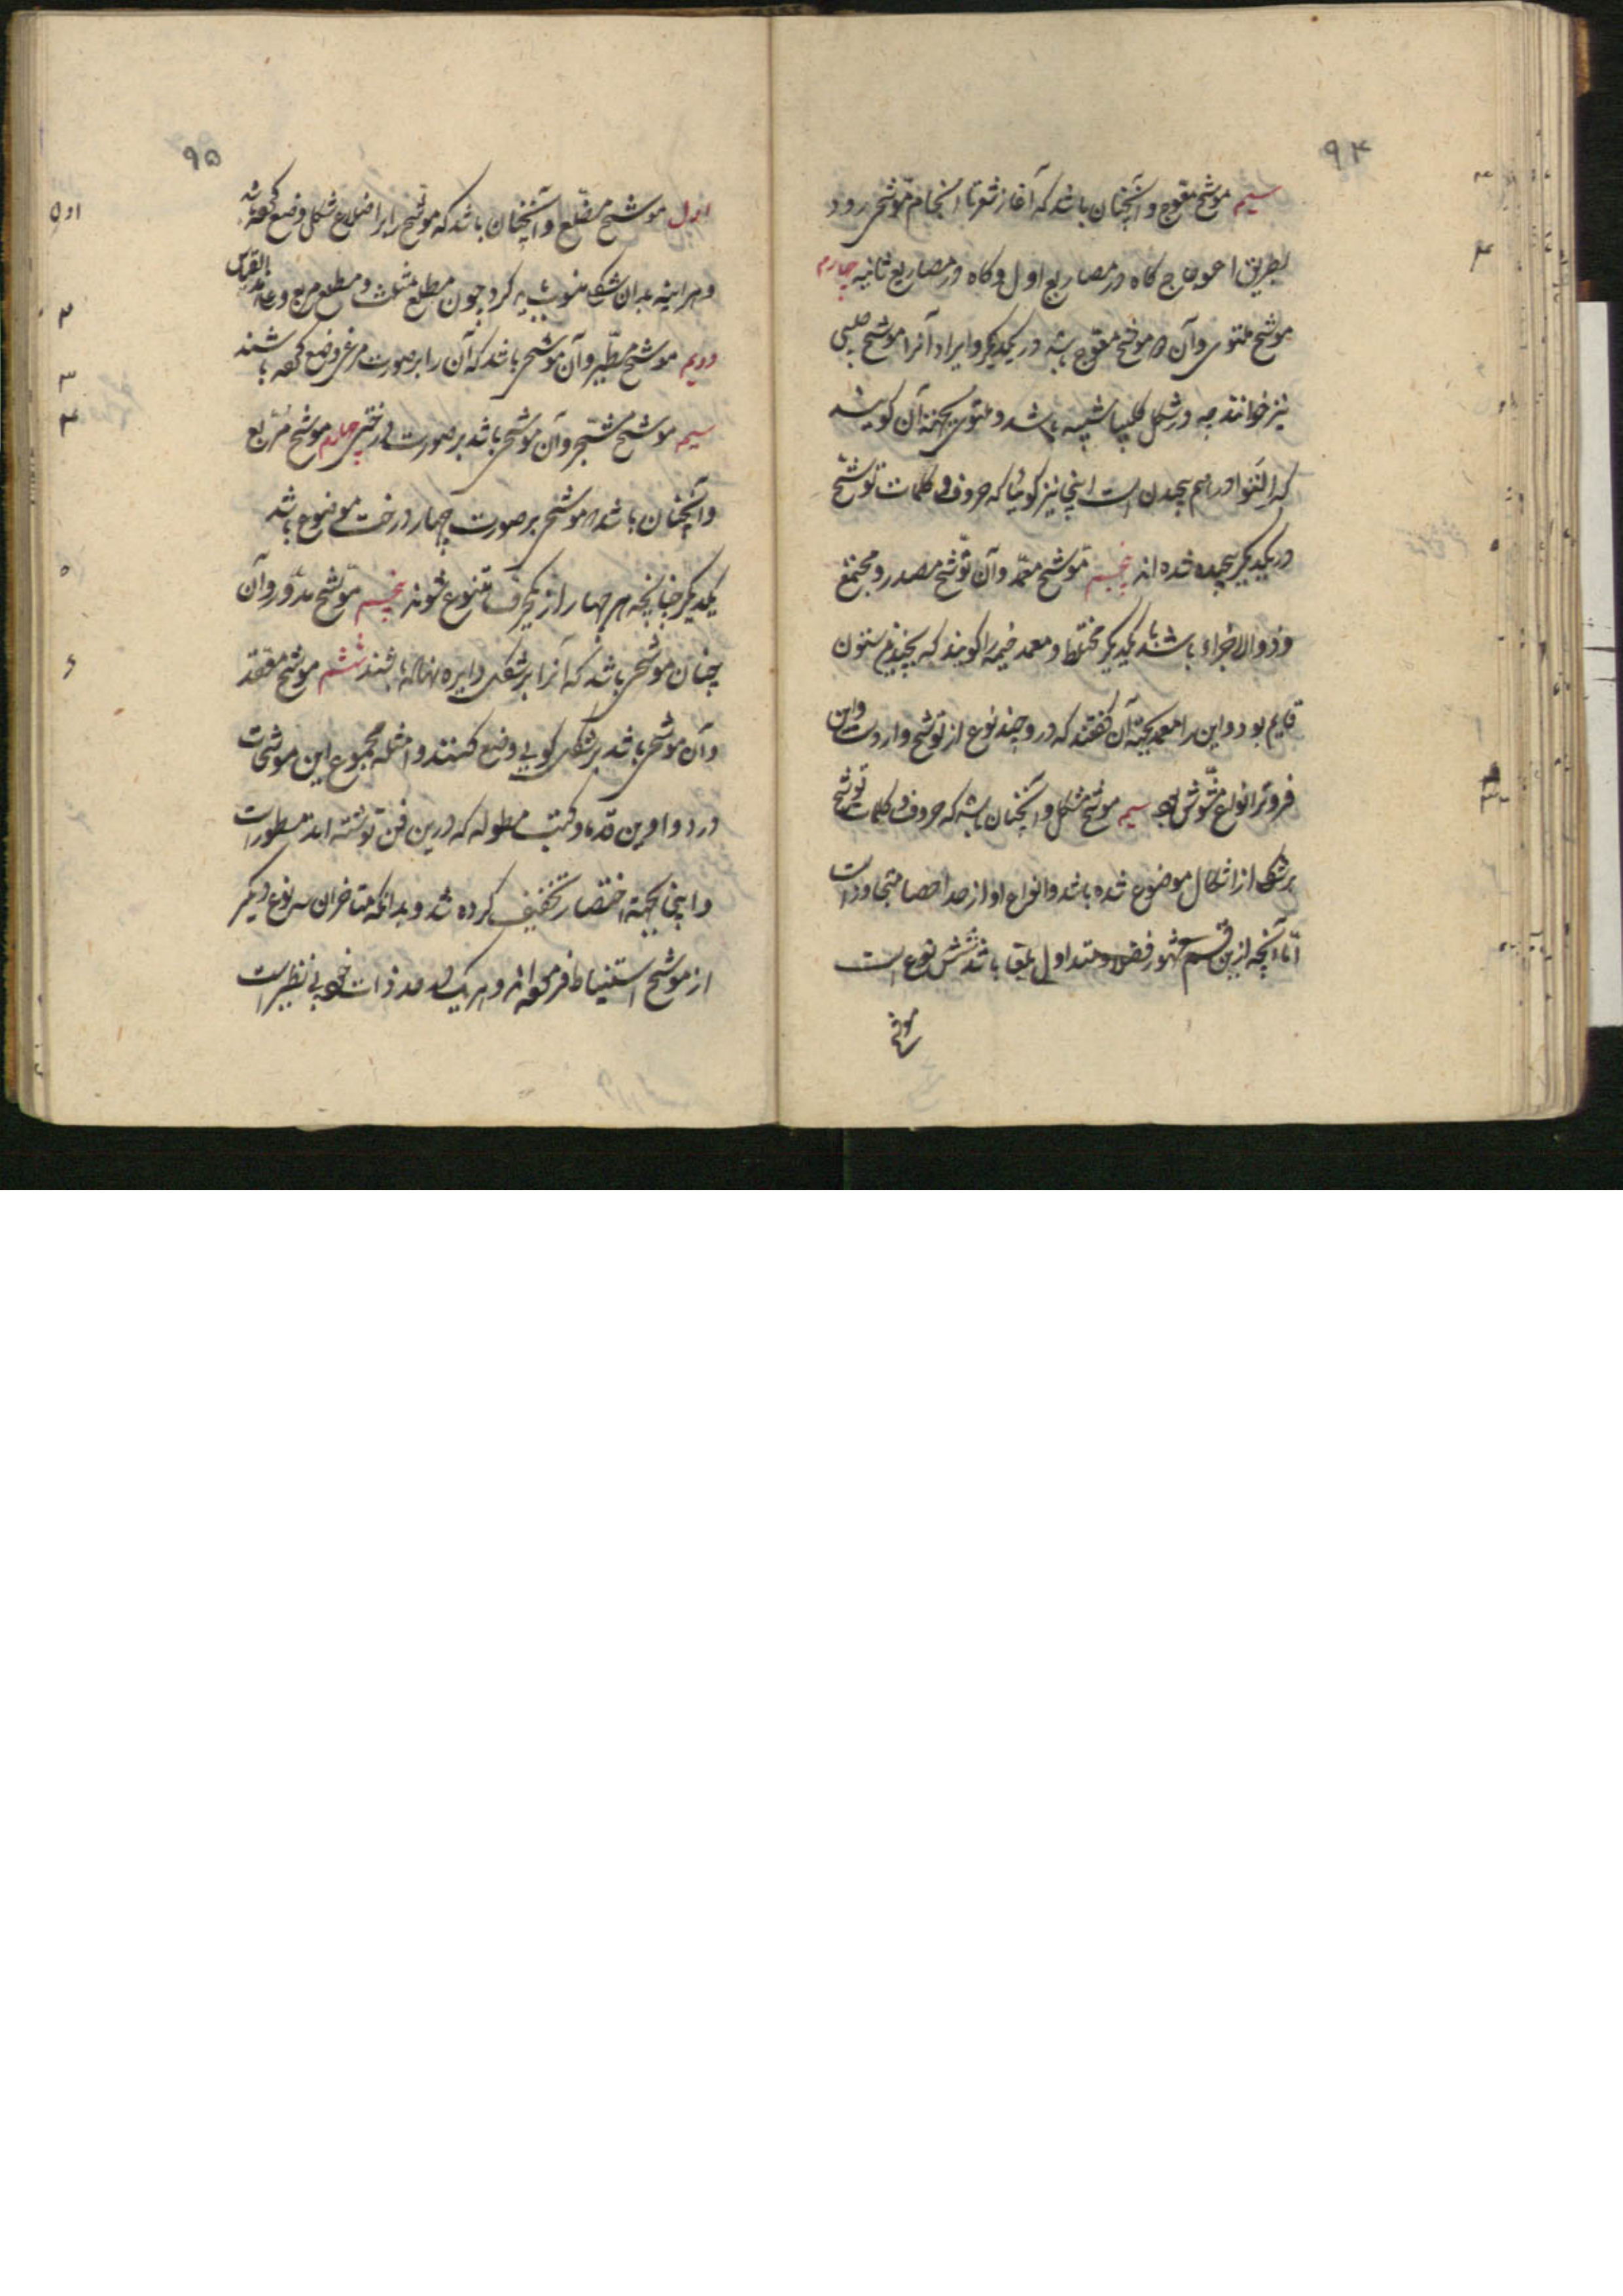 ۹۴
سیم موشح معوج و آنچنان باشد که آغاز شعر تا انجام موشحی رود
بطریق اعوجاج کاه در مصاریع اول و کاه در مصاریع ثانیه چهارم
موشح ملتوی و آن موشح معوج باشد در یکدیکر و ایراد آنرا موشح صلیبی
نیز خوانند چه در شکل کلیسا شبیه باشد و ملتوی بجهت آن کویند
که التوا درهم پیچیدن است اینجا نیز کوئیا که حروف و کلمات توشیح
در یکدیکر پیچیده شده اند پنجم موشح معمد و آن توشیح مصدر و مجتمع
و ذوالاجزاء باشند با یکدیکر مختلط و معمد خیمه را کویند که بچندین ستون
قایم بود و این را معمد بجهت آن کفتند که درو چند نوع از توشیح وارد است و این
فروتر انواع مشوش بود سیم موشح مشکل و آنچنان باشد که حروف و کلمات توشیح
بر شکلی از اشکال موضوع شده باشد و انواع او از حد احصا متجاوز است
اما آنچه ازین قسم مشهور فضلا و متداول بلغا باشد شش نوع است
موشح
۹۵
اول موشح مضلع و آنچنان باشد که موشح را بر اضلاع شکل وضع کرده باشند
و هر آینه بدان شکل منسوب باید کرد چون مضلع مثلث و مضلع مربع و علی هذا القیاس
دویم موشح مطیر و آن موشحی باشد که آن را بر صورت مرغی وضع کرده باشند
سیم موشح مشجر و آن موشحی باشد بر صورت درختی چهارم موشح مربع
و آنچنان باشد که موشحی بر صورت چهار درخت موضوع باشد
یکدیکر چنانچه هر چهار از یک حرف متنوع شوند پنجم موشح مدور و آن
چنان موشحی باشد که آنرا بر شکل دایره نهاده باشند ششم موشح معقد
و آن موشحی باشد بر شکل کویی وضع کنند و امثله مجموع این موشحات
در دواوین قدما و کتب مطوله که درین فن نوشته اند مسطور است
و اینجا بجهت اختصار تخفیف کرده شد و بدانکه متاخران سه نوع دیکر
از موشح استنباط فرموده اند و هر یک در حد ذات خود بی نظیر است
اول
۲
۳
۴
۵
۶